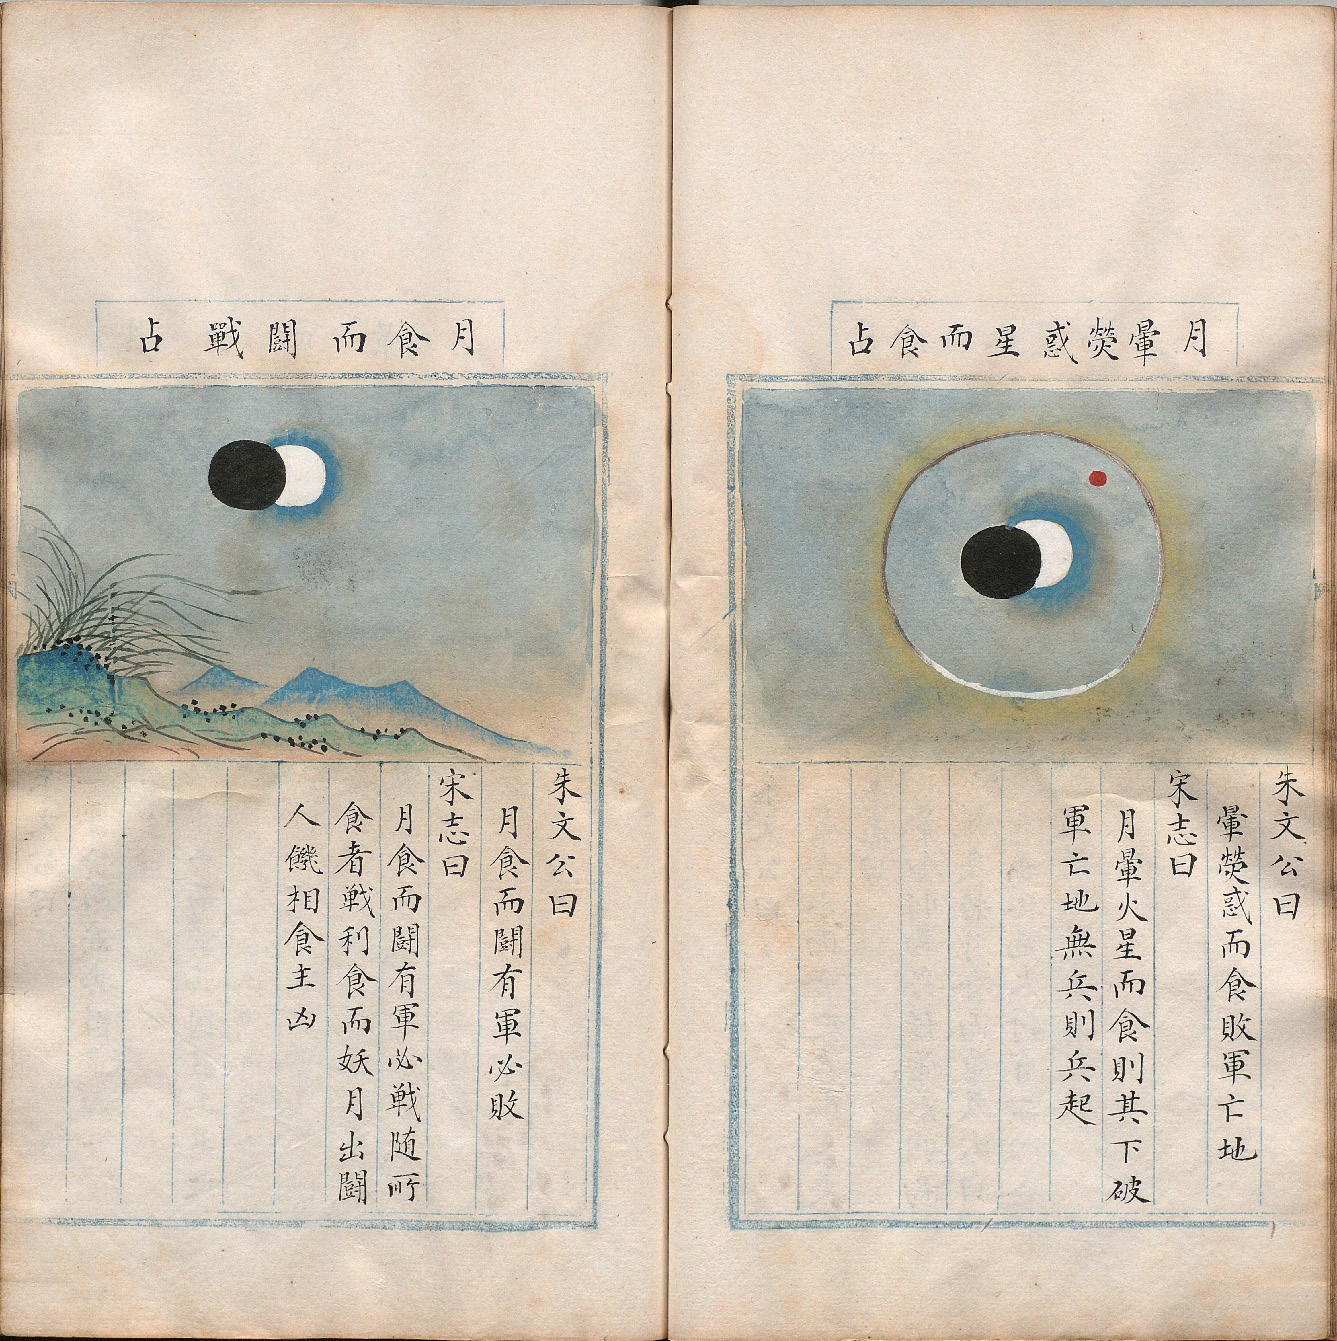 月暈熒惑星而食占
朱文公曰
暈熒惑而食敗軍亡地
宋志曰
月暈火星而食則其下破
軍亡地無兵則兵起
月食而鬪戰占
朱文公曰
月食而鬪有軍必敗
宋志曰
月食而鬪有軍必戦随所
食者戦利食而妖月出鬪
人饑相食主凶